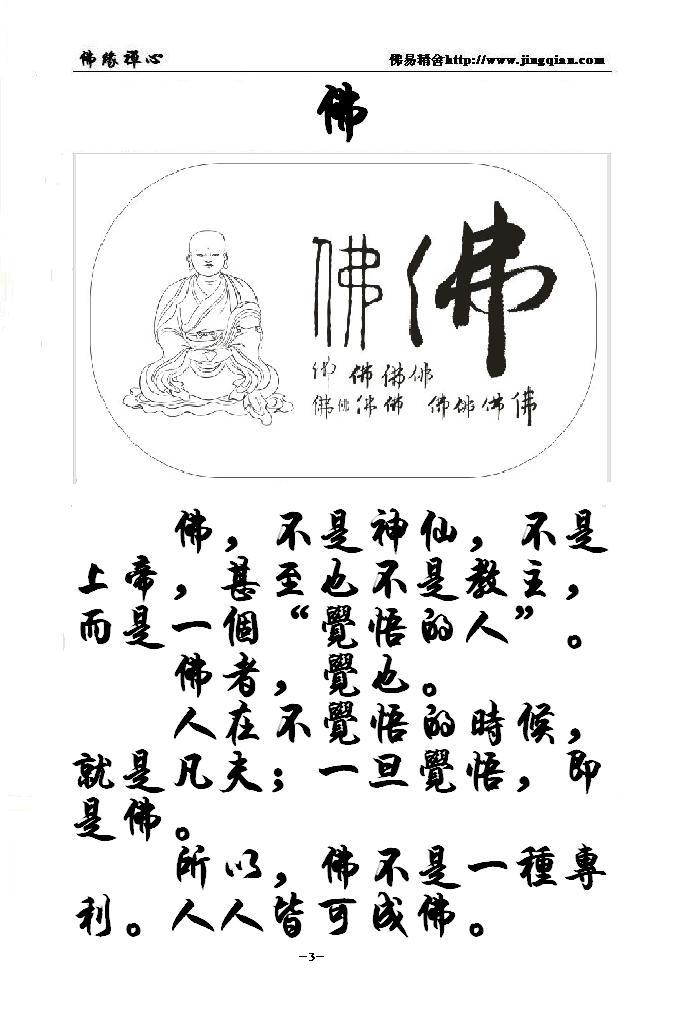 佛緣禪心 佛易精舍http://www.jingqian.com
佛
佛佛
佛佛佛佛
佛佛佛佛 佛佛佛佛
佛，不是神仙，不是
上帝，甚至也不是教主，
而是一個“覺悟的人”。
佛者，覺也。
人在不覺悟的時候，
就是凡夫；一旦覺悟，即
是佛。
所以，佛不是一種專
利。人人皆可成佛。
-3-